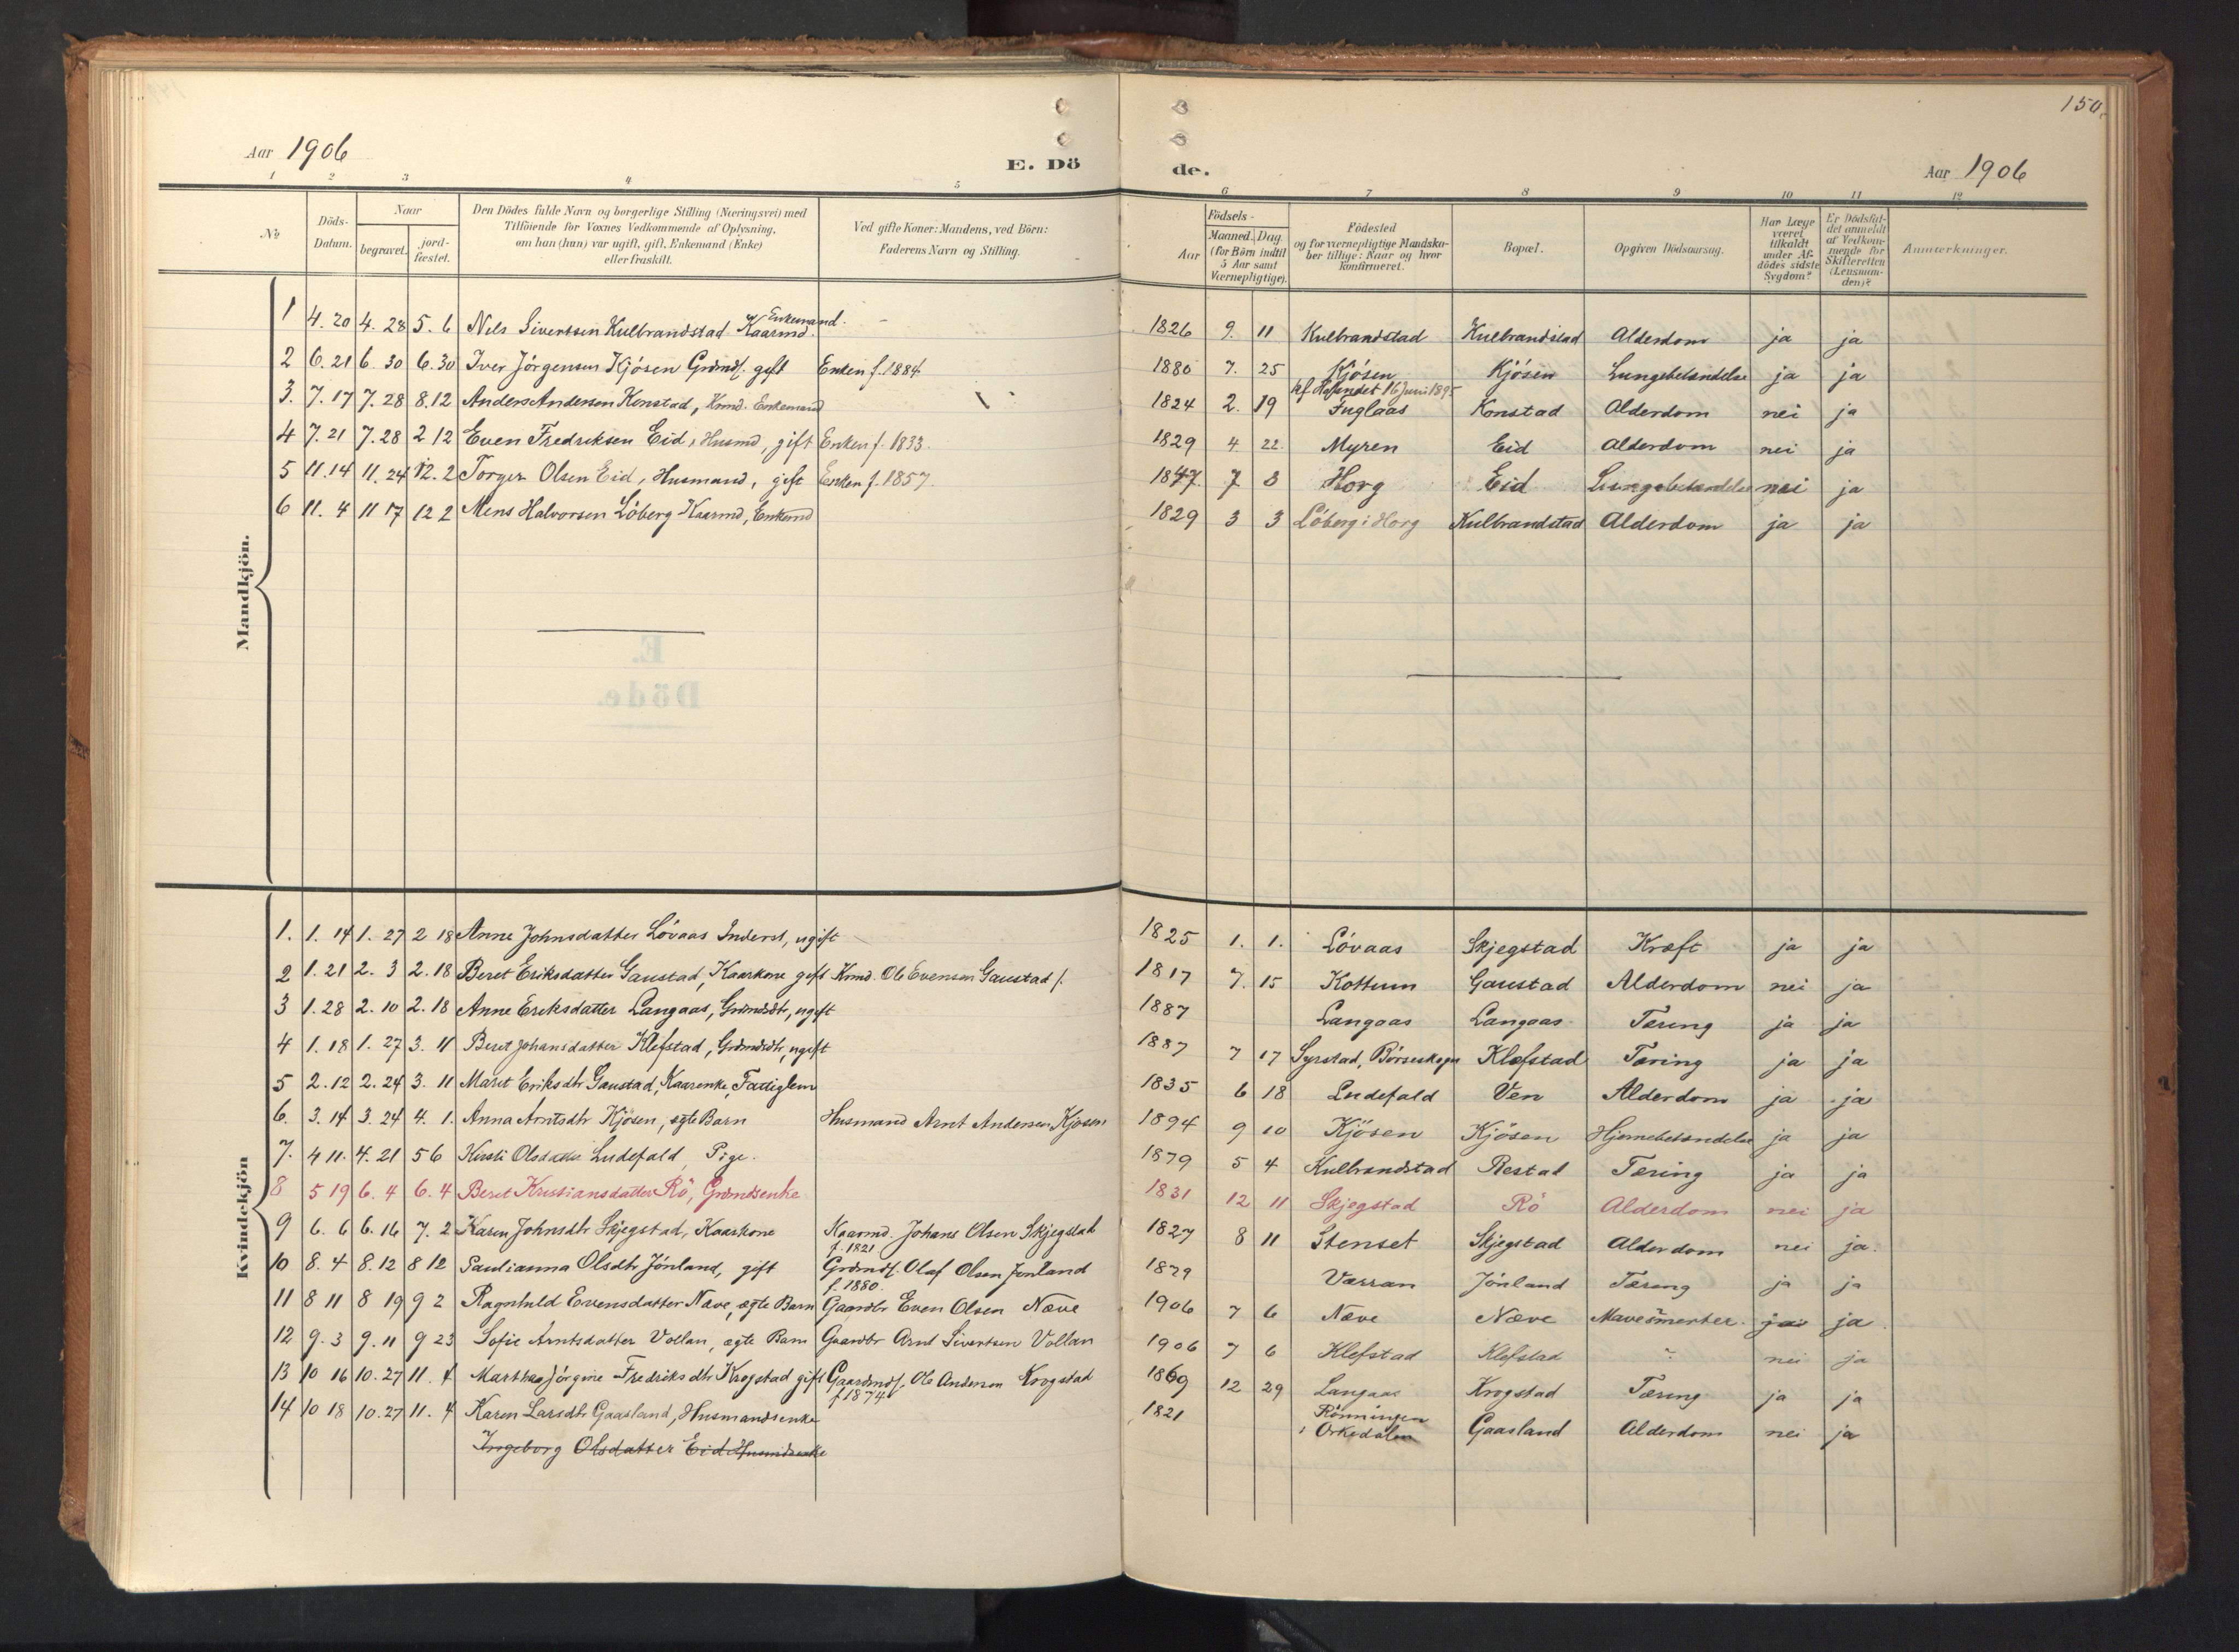 150.
Aar 1906 E. Dö de. Aar 1906
1 2 3 4 5 6 7 8 9 10 11 12
No Döds-Datum. Naar begravet. jord-fæstet. Den Dödes fulde Navn og borgerlige Stilling (Næringsvei) med Tilföiende for Voxnes Vedkommende af Oplysning, om han (hun) var ugift, gift, Enkemand (Enke) eller fraskilt. Ved gifte Koner: Mandens, ved Börn: Faderens Navn og Stilling. Födsels- Aar Maaned. Dag. (for Börn indtil 5 Aar samt Værnepligtige). Födested og for værnepligtige Mandskaber tillige: Naar og hvor konfirmeret. Bopæl. Opgiven Dödsaarsag. Har Læge været tilkaldt under Afdödes sidste Sygdom? Er Dödsfaldet anmeldt af Vedkommende for Skifteretten (Lensmanden)? Anmærkninger.
Mandkjön.
1 4. 20 4. 28 5. 6 Nils Sivertsen Kulbrandstad Kaarmd. Enkemand. 1826 9. 11 Kulbrandstad Kulbrandstad Alderdom ja ja
2 6. 21 6. 30 6. 30 Iver Jörgensen Kjösen Grdmds. gift Enken f. 1884 1880 7. 25 Kjösen Kjösen Lungebetændelse ja ja
kf Hølandet 16 Juni 1895
3. 7. 17 7. 28 8. 12 Anders Andersen Konstad, Kmd. Enkemand 1824 2. 19 Fuglaas Konstad Alderdom nei ja
4 7. 21 7. 28 2 12 Even Fredriksen Eid, Husmd, gift Enken f. 1833. 1829 4 22. Myren Eid Alderdom nei ja
5 11. 14 11. 24 12. 2 Torger Olsen Eid, Husmand, gift Enken f. 1857. 1847 7 8 Horg Eid Lungebetændelse nei ja
6 11. 4 11 17 12 2 Mens Halvorsen Löberg Kaarmd, Enkemd 1829 3 3 Löberg i Horg Kulbrandstad Alderdom ja ja
Kvindekjön
1. 1. 14 1. 27 2 18 Anne Johnsdatter Lövaas Inderst, ugift 1825 1. 1. Lövaas Skjegstad Kræft ja ja
2 1. 21 2. 3 2. 18 Beret Eriksdatter Gaustad, Kaarkone gift Kmd. Ole Evensen Gaustad f. 1817 7. 15 Kottum Gaustad Alderdom nei ja
3 1. 28 2. 10 2. 18 Anne Eriksdatter Langaas, Grdmdsdtr, ugift 1887 Langaas Langaas Tæring ja ja
4 1. 18 1. 27 3. 11 Beret Johansdatter Klefstad, Grdmdsdtr, ugift 1887 7 17 Syrstad, Börseskogn Klefstad Tæring ja ja
5 2. 12 2. 24 3. 11 Marit Eriksdtr Gaustad, Kaarenke, Fattiglem 1835 6 18 Ludefald Ven Alderdom ja ja
6. 3. 14 3. 24 4. 1. Anna Arntsdtr Kjösen, ægte Barn Husmand Arnt Andersen Kjösen 1894 9 10 Kjösen Kjösen Hjernebetændelse ja ja
7. 4 11. 4. 21 5 6 Kirsti Olsdatter Ludefald, Pige. 1879 5 4 Kulbrandstad Restad Tæring ja ja
8 5 19 6. 4 6. 4 Beret Kristiansdatter Rö, Grdmdsenke 1831 12 11 Skjegstad Rö Alderdom nei ja
9 6. 6 6. 16 7. 2 Karen Johnsdtr Skjegstad, Kaarkone Kaarmd. Johans Olsen Skjegstad f. 1821 1827 8 11 Stenset Skjegstad Alderdom nei ja.
10 8. 4 8. 12 8 12 Paulianna Olsdtr Jönland, gift Grdmds. Olaf Olsen Jönland f. 1880. 1879 Værran Jönland Tæring ja ja
11 8 11 8 19 9 2 Ragnhild Evensdatter Næve, ægte Barn Gaardbr Even Olsen Næve 1906 7 6 Næve Næve Mavesmerter. ja
12 9. 3 9. 11 9 23 Sofie Arntsdatter Vollan, ægte Barn Gaardbr Arnt Sivertsen Vollan 1906 7 6 Klefstad Klefstad ? nei ja
13 10 16 10. 27 11. 4 Martha Jörgine Fredriksdtr Krogstad gift Gaardmds. Ole Andersen Krogstad f 1874 1869 12 29 Langaas Krogstad Tæring ja ja
14 10 18 10. 27 11. 4 Karen Larsdtr Gaasland, Husmandsenke 1821 Rönningen i Orkedalen Gaasland Alderdom nei ja
Ingeborg Olsdatter Eid Husmdsenke